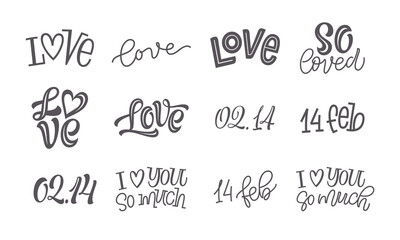 LOVE
love
LOVE
SO
loved
LO
VE
Love
02.14
14 feb
02.14
I ♡ YOU
SO MUCH
14 feb
I ♡ YOU
so much